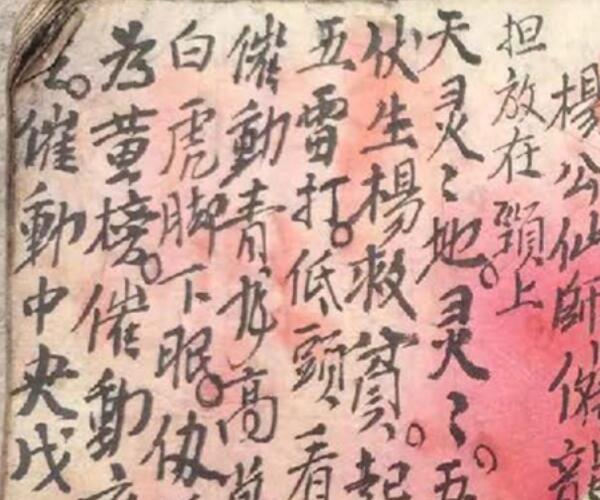 楊公仙師
担放在頸上
天灵〻地。灵〻。五
伏生楊救貧。起
五雷打。低頭看
催動青龙高
白虎脚下眠。伋
為黄榜。催動
。催動中央戊